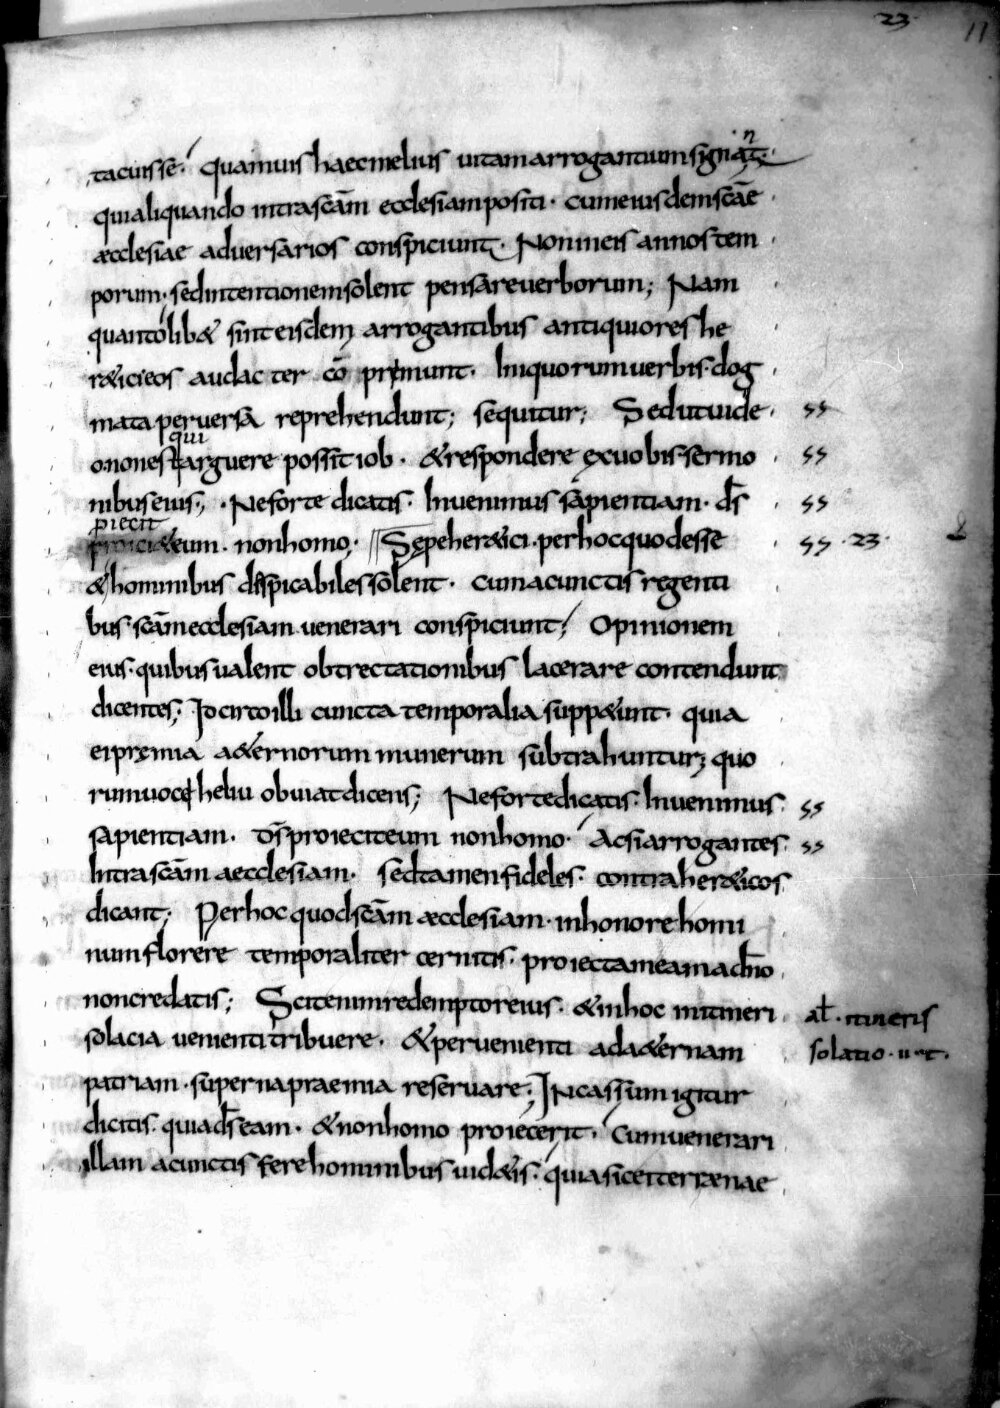 23 11
tacuisse. Quamuis haec melius uitam arrogantium signant.
qui aliquando intra scām ecclesiam positi. cum eiusdem scāe
æcclesiae aduersarios conspiciunt. Non in eis annos tem
porum. sed intentionem solent pensare uerborum; Nam
quantolib& sint eisdem arrogantibus antiquiores he
r&ici eos audacter cōpręmunt. In quorum uerbis dog
mata peruersa reprehendunt; sequitur; Sed ut uide
o. non est qui arguere possit iob. & respondere ex uobis sermo
nibus eius; Ne forte dicatis. Inuenimus sapientiam. d̄s
piecit
eum. non homo; Sępe her&ici. per hoc quod esse
& hominibus dispicabiles solent. cum a cunctis regenti
bus. scām ecclesiam uenerari conspiciunt; Opinionem
eius. quibus ualent obtrectationibus lacerare contendunt
dicentes; Idcirto illi cuncta temporalia supp&unt. quia
ei pręmia a&ernorum munerum subtrahuntur; quo
rum uocę heliu obuiat dicens; Ne forte dicatis. Inuenimus
sapientiam. d̄s proiecit eum non homo. Acsi arrogantes
Intra scām aecclesiam. sed tamen fideles. contra her&icos
dicant; Per hoc quod scām æcclesiam. in honore homi
num florere temporaliter cernitis. proiectam eam a dn̄o
non credatis; Scit enim redemptor eius. & in hoc initineri
solacia uenienti tribuere. & peruenienti ad a&ernam
patriam. superna praemia reseruare; Incassum igitur
dicitis. quia d̄s eam. & non homo proiecerit. Cum uenerari
illam a cunctis fere hominibus uid&is. quia sic et terrænae
23
al. itineris
solatio